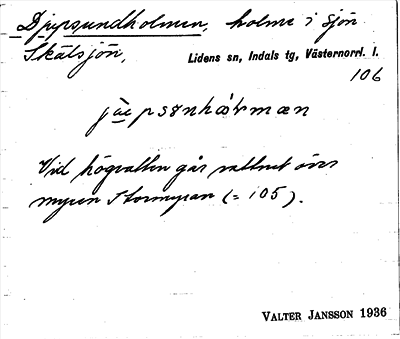 Djupsundholmen, holme i sjön
Skälsjön, Lidens sn, Indals tg, Västernorrl. l.
106
Vid högvatten går vattnet över
myren Stormyran (= 105).
VALTER JANSSON 1936